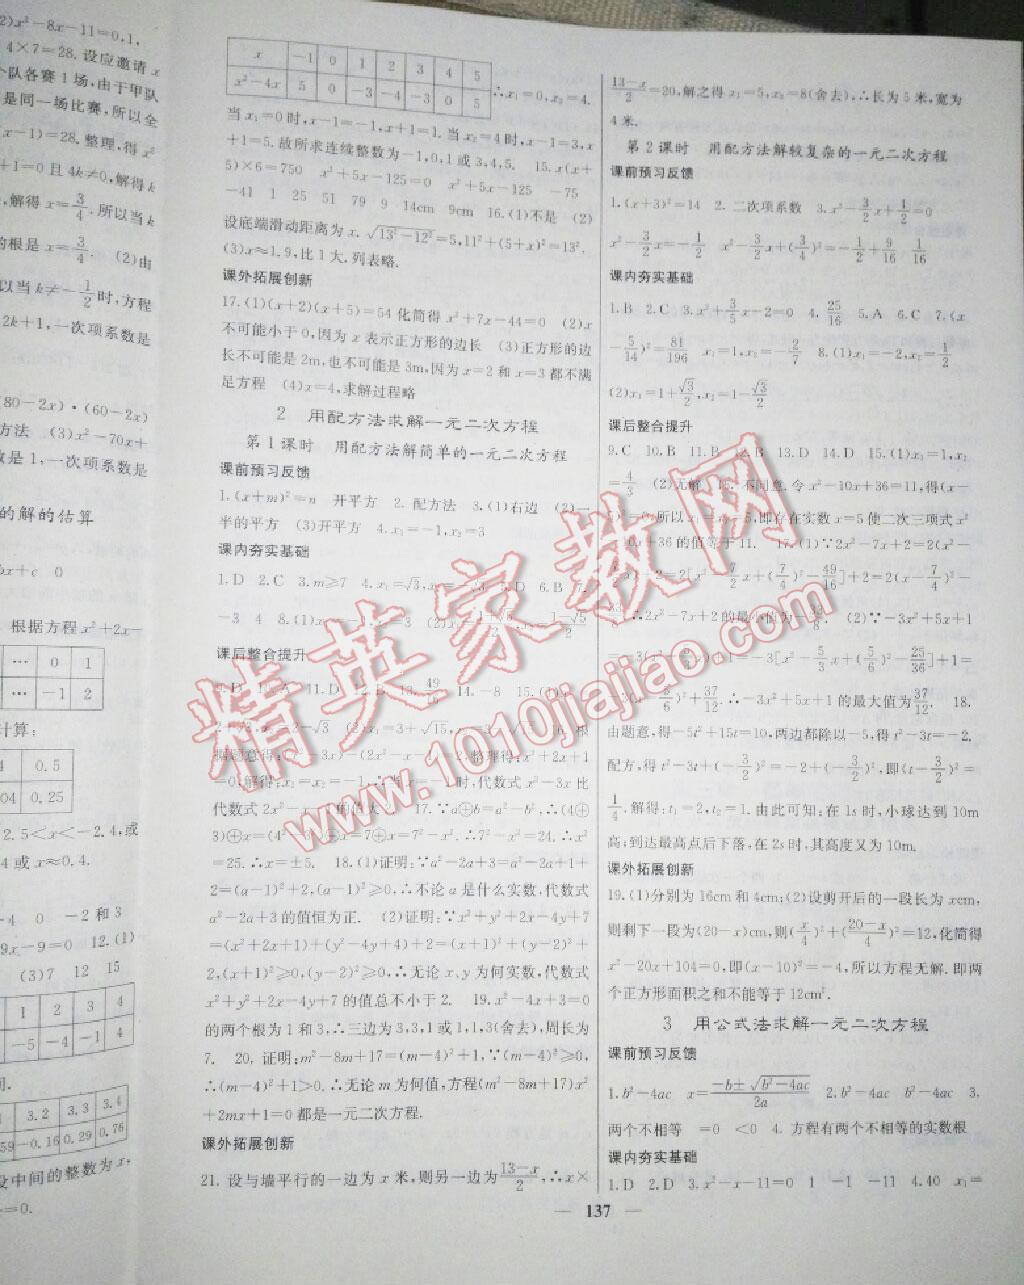 2)x²-8x-11=0,1.
4×7=28.设应邀请x
个队各赛1场,由于甲队
是同一场比赛,所以全
x-1)=28.整理,得x²
+1=0且4k≠0,解得k
,解得x=3/4.所以当k
的根是x=3/4. (2)由
以当k≠-1/2时,方程
2k+1,一次项系数是
(80-2x)·(60-2x)
方法 (3)x²-70x+
数是1,一次项系数是
的解的估算
bx+c 0
根据方程x²+2x-
… 0 1
… -1 2
计算:
4 0.5
04 0.25
2.5<x<-2.4,或
4或x≈0.4.
-4 0 -2和3
9x-9=0 12.(1)
(3)7 12 15
1 2 3 4
-5 -4 -1 4
3.2 3.3 3.4
59 -0.16 0.29 0.76
设中间的整数为x,
=0.
x -1 0 1 2 3 4 5
x²-4x 5 0 -3 -4 -3 0 5 ∴x₁=0,x₂=4.
当x₁=0时,x-1=-1,x+1=1.当x₂=4时,x-1=3,x
+1=5.故所求连续整数为-1,0,1或3,4,5. 15.x(x+
5)×6=750 x²+5x-125=0 x²+5x-125 -75
-41 1 25 51 79 9 14cm 9cm 16.(1)不是 (2)
设底端滑动距离为x.√13²-12²=5,11²+(5+x)²=13².
(3)x≈1.9,比1大.列表略.
课外拓展创新
17.(1)(x+2)(x+5)=54化简得x²+7x-44=0 (2)x
不可能小于0,因为x表示正方形的边长 (3)正方形的边
长不可能是2m,也不可能是3m,因为x=2和x=3都不满
足方程 (4)x=4,求解过程略
2 用配方法求解一元二次方程
第1课时 用配方法解简单的一元二次方程
课前预习反馈
1.(x+m)²=n 开平方 2.配方法 3.(1)右边 (2)一
半的平方 (3)开平方 4.x₁=-1,x₂=3
课内夯实基础
1.D 2.C 3.m≥7 4.x₁=√3,x₂=-√3 5.D 6.B 7.
-3 4 8.(1)x₁=-1,x₂=3
课后整合提升
9.D 10.A 11.D 12.B 13.49/16 14.-8 15.(1)
代数式x²-3x比
代数式2x²-x-1的值大2. 17.∵a⊕b=a²-b²,∴(4⊕
3)⊕x=(4²-3²)⊕x=7⊕x=7²-x².∴7²-x²=24.∴x²
=25.∴x=±5. 18.(1)证明:∵a²-2a+3=a²-2a+1+
2=(a-1)²+2,(a-1)²≥0,∴不论a是什么实数,代数式
a²-2a+3的值恒为正. (2)证明:∵x²+y²+2x-4y+7
=(x²+2x+1)+(y²-4y+4)+2=(x+1)²+(y-2)²+
2,(x+1)²≥0,(y-2)²≥0,∴无论x、y为何实数,代数式
x²+y²+2x-4y+7的值总不小于2. 19.x²-4x+3=0
的两个根为1和3,∴三边为3,3,1或1,1,3(舍去),周长为
7. 20.证明:m²-8m+17=(m-4)²+1,∵(m-4)²≥0,
∴(m-4)²+1>0.∴无论m为何值,方程(m²-8m+17)x²
+2mx+1=0都是一元二次方程.
课外拓展创新
21.设与墙平行的一边为x米,则另一边为13-x/2,∴x×
13-x/2=20,解之得x₁=5,x₂=8(舍去),∴长为5米,宽为
4米.
第2课时 用配方法解较复杂的一元二次方程
课前预习反馈
1.(x+3)²=14 2.二次项系数 3.x²-3/2x+1/2=0
x²-3/2x=-1/2 x²-3/2x+(3/4)²=-1/2+9/16 1/16
课内夯实基础
1.B 2.C 3.x²+3/5x-2=0 4.25/16 5.A 6.C 7.(x
-5/14)²=81/196 x₁=1,x₂=-2/7 8.(1)x₁=-2,x₂=1/2
(2)x₁=1+√3/2,x₂=1-√3/2
课后整合提升
9.C 10.B 11.B 12.B 13.D 14.D 15.(1)x₁=1,x₂
=4/3 (2)无解 16.不同意.令x²-10x+36=11,得(x-
5)²=0.所以x₁=x₂=5,即存在实数x=5使二次三项式x²
-10x+36的值等于11. 17.(1)∵2x²-7x+2=2(x²-
7/2x)+2=2[x²-7/2x+(7/4)²-49/16]+2=2(x-7/4)²-
33/8,∴2x²-7x+2的最小值为-33/8. (2)∵-3x²+5x+1
=-3(x²-5/3x)+1=-3[x²-5/3x+(5/6)²-25/36]+1=
-3(x-5/6)²+37/12.∴-3x²+5x+1的最大值为37/12. 18.
由题意,得-5t²+15t=10,两边都除以-5,得t²-3t=-2.
配方,得t²-3t+(-3/2)²=-2+(-3/2)²,即(t-3/2)²=
1/4.解得:t₁=2,t₂=1.由此可知:在1s时,小球达到10m
高;到达最高点后下落,在2s时,其高度又为10m.
课外拓展创新
19.(1)分别为16cm和4cm;(2)设剪开后的一段长为xcm,
则剩下一段为(20-x)cm,则(x/4)²+(20-x/4)²=12,化简得
x²-20x+104=0,即(x-10)²=-4,所以方程无解.即两
个正方形面积之和不能等于12cm².
3 用公式法求解一元二次方程
课前预习反馈
1.b²-4ac x=-b±√b²-4ac/2a 2.b²-4ac b²-4ac 3.
两个不相等 =0 <0 4.方程有两个不相等的实数根
课内夯实基础
1.D 2.D 3.x²-x-11=0 1 -1 -11 4.40 x₁=
— 137 —
精英家教网
www.1010jiajiao.com